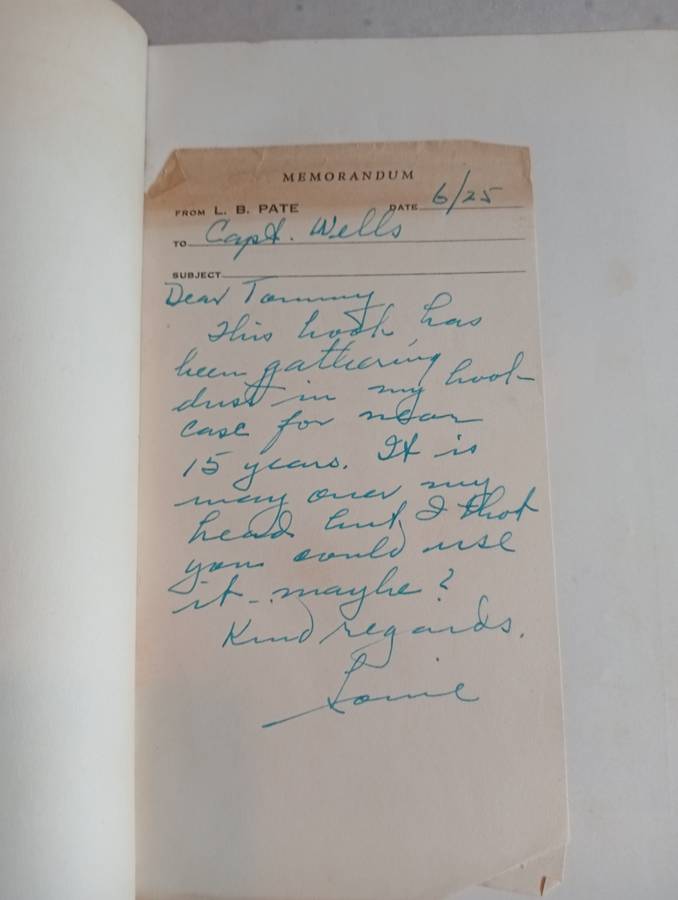 MEMORANDUM
FROM L. B. PATE DATE 6/25
TO Capt. Wells
SUBJECT
Dear Tommy
This book has
been gathering
dust in my book-
case for near
15 years. It is
way over my
head but I thot
you could use
it - maybe?
Kind regards.